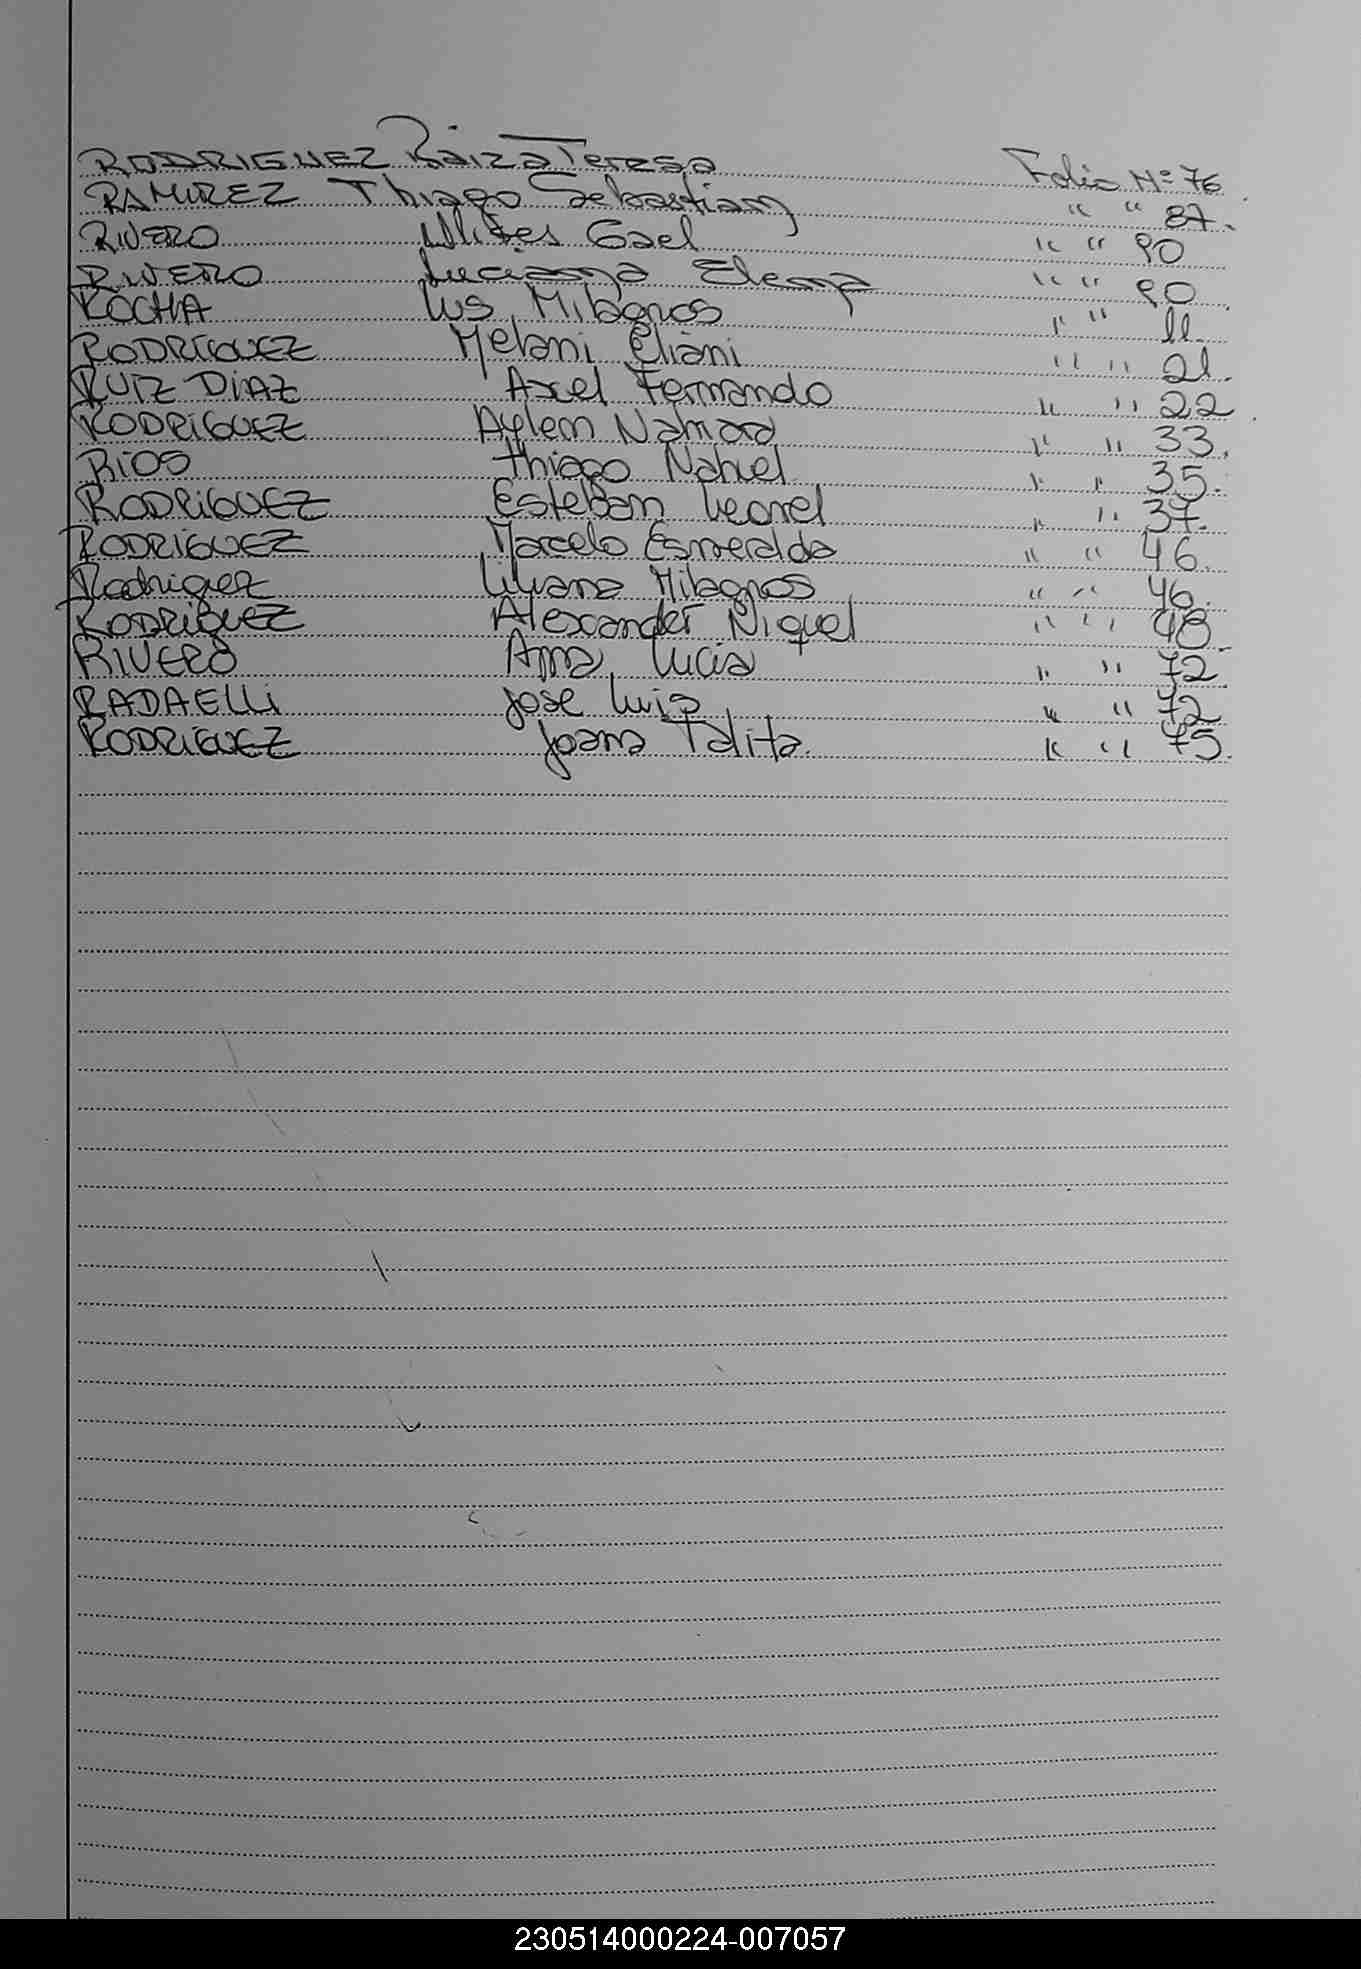 RODRIGUEZ Raiza Teresa Folio Nº 76
RAMIREZ Thiago Sebastian " " 87.
RIVERO Ulises Gael " " 90
RIVERO Luciana Elena " " 90
ROCHA Lus Milagros " " 11.
RODRIGUEZ Melani Eliani " " 21.
RUIZ DIAZ Axel Fernando " " 22
RODRIGUEZ Aylem " " 33.
RIOS Thiago Nahuel " " 35.
RODRIGUEZ Esteban Leonel " " 37.
RODRIGUEZ Marcelo Esmeralda " " 46.
Rodriguez Liliana Milagros " " 46.
RODRIGUEZ Alexander Miguel " " 48.
RIVERO Ana Lucia " " 72.
RADAELLi Jose Luis " " 72
RODRIGUEZ Joana Talita. " " 75.
230514000224-007057